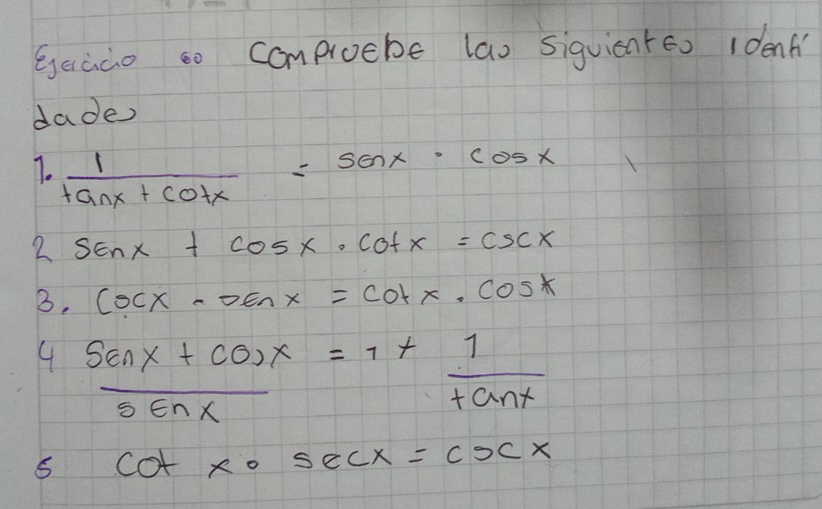 Ejercicio so comprUEbE las siguientEs identi
dades
1. 1 / tanx + cotx = senx · cosx
2 SEnx + cosx · cotx = cscx
3. cscx - sEnx = cotx · cosx
4 SEnx + cosx / sEnx = 1 + 1 / tanx
5 cot x · sEcx = cscx